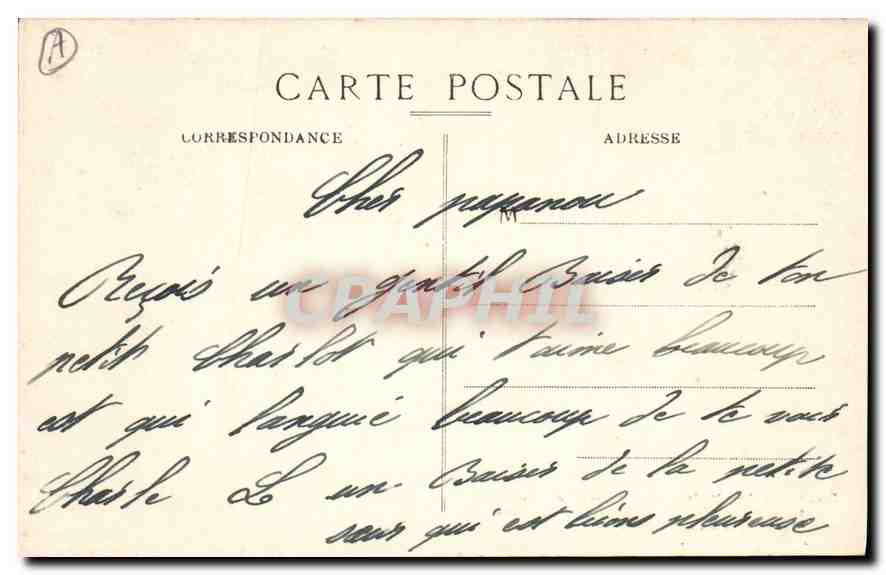 A
CARTE POSTALE
CORRESPONDANCE
ADRESSE
Cher papanou
M
Reçois un gentil Baiser de ton
petit Charlot qui t'aime beaucoup
est qui languie beaucoup de te voir
Charle L un Baiser de la petite
sœur qui est bions pleureuse
CPAPHIL